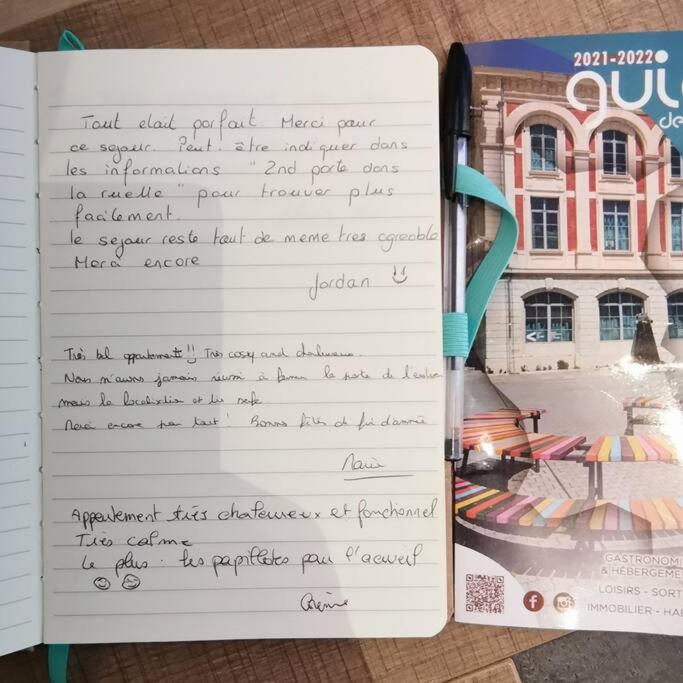 Tout etait parfait. Merci pour
ce sejour. Peut. être indiquer dans
les informations " 2nd porte dans
la ruelle " pour trouver plus
facilement.
le sejour reste tout de meme tres agréable
Merci encore
Jordan
Très bel appartement !! Tres cosy and chaleureux.
Nous n'avons jamais réussi à fermer la porte de l'entrée
mais la localisation et
Merci encore pour tout ! Bonnes fêtes de fin d'année
Marie
Appartement très chaleureux et fonctionnel
Très calme
Le plus : les papillotes pour l'acueil
2021-2022
gui
de
GASTRONOMI
& HÉBERGEME
LOISIRS - SORT
IMMOBILIER - HAB